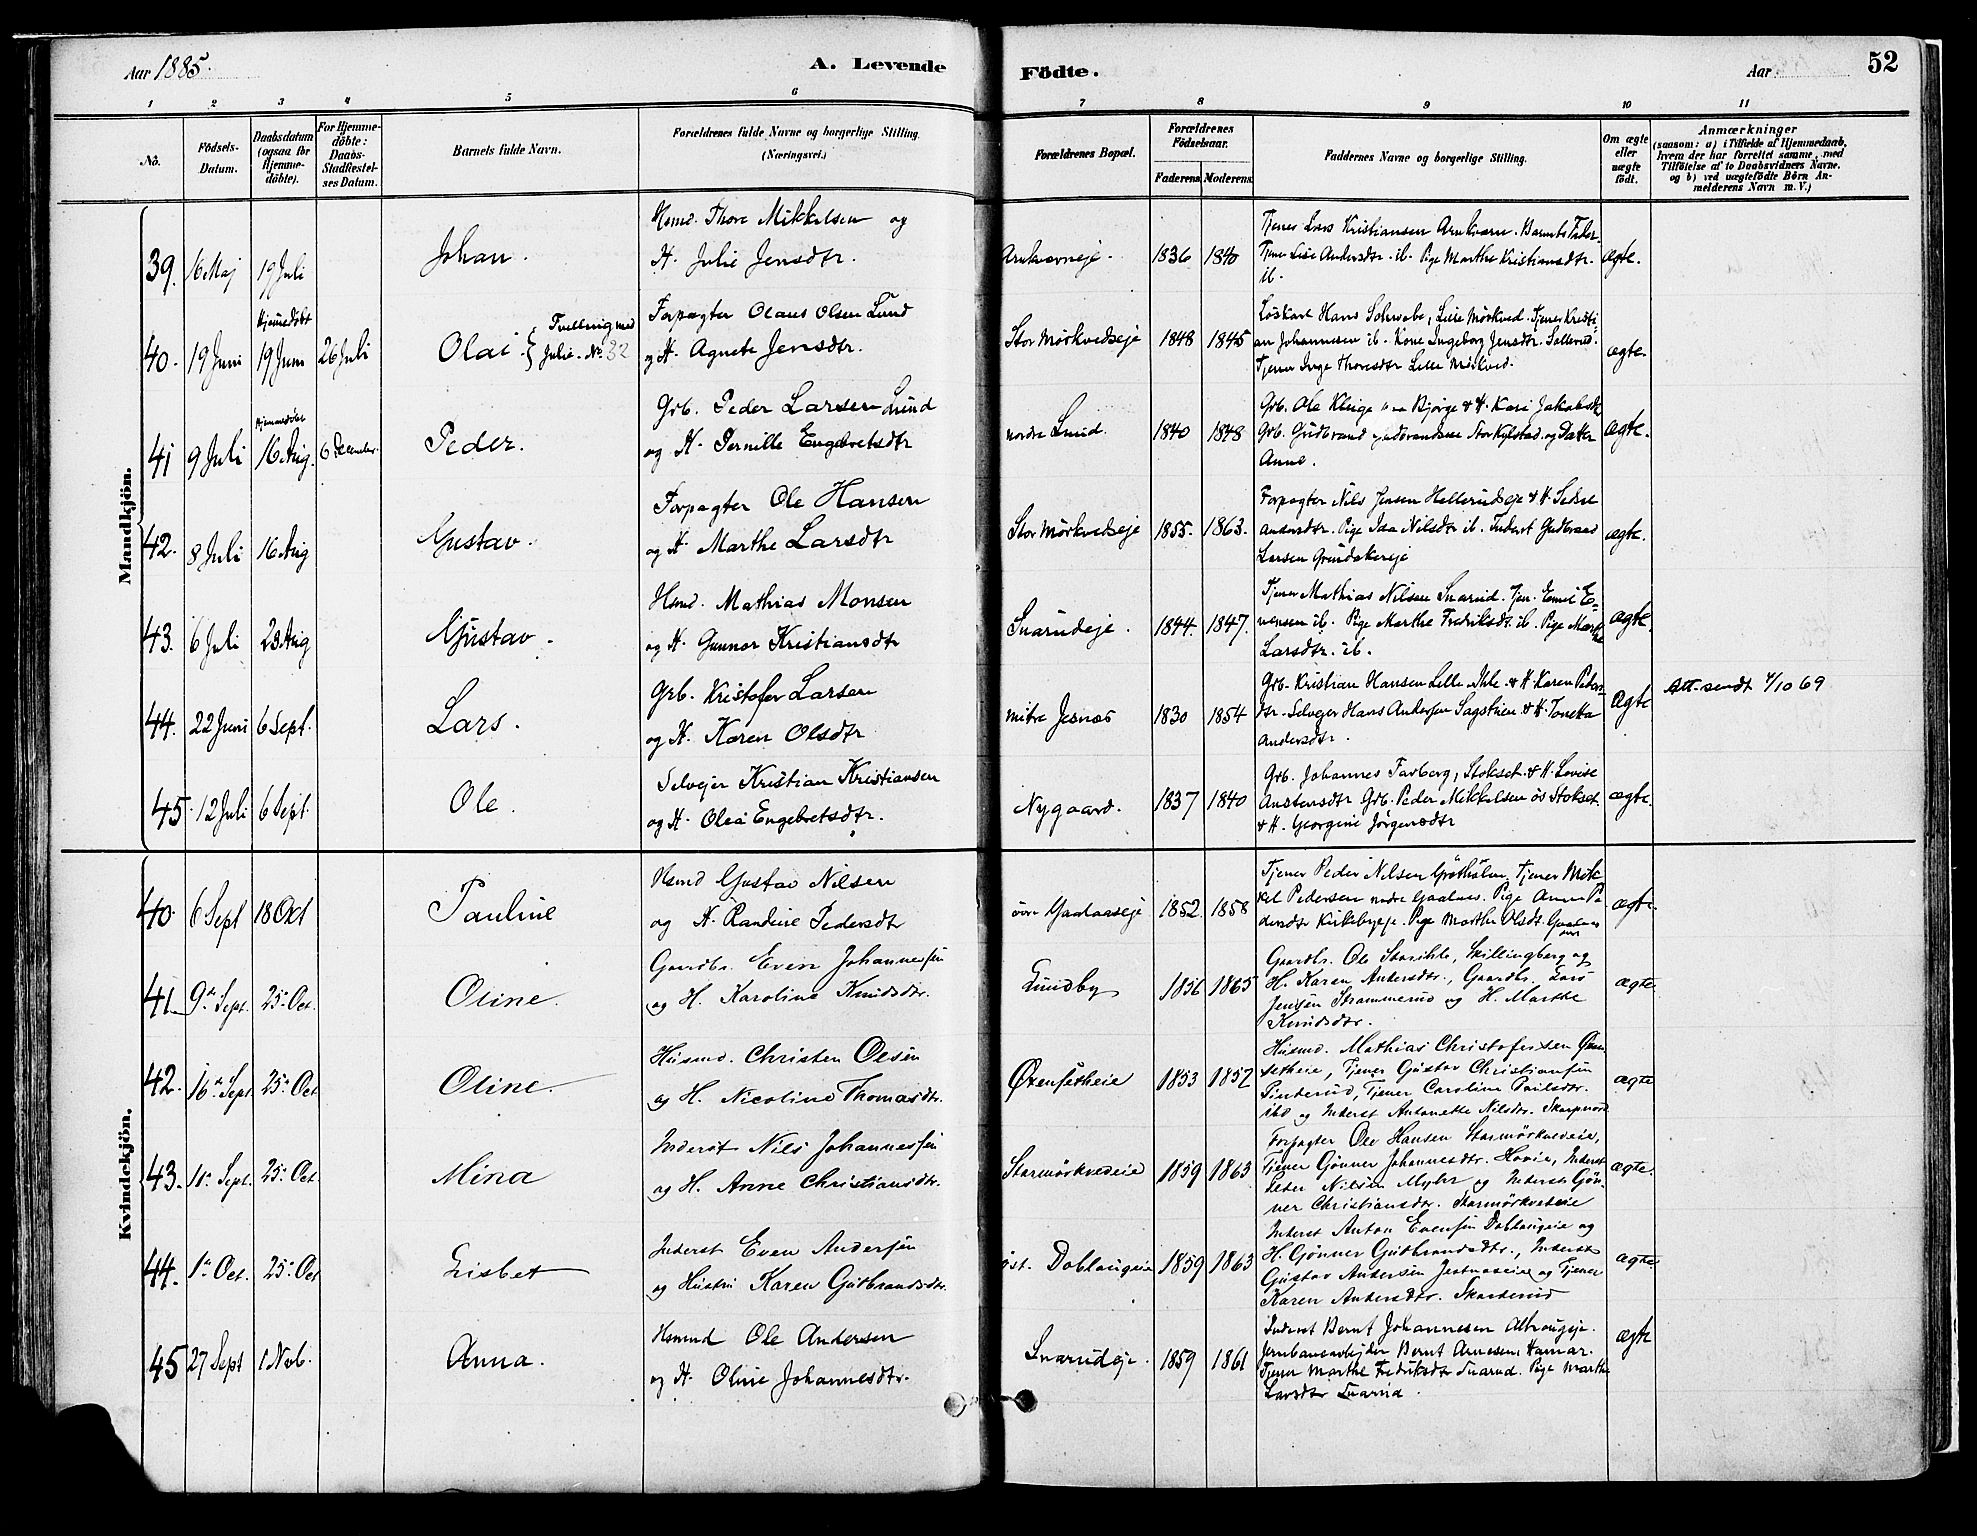 Aar 1885.
A. Levende Födte.
Aar
52
1 2 3 4 5 6 7 8 9 10 11
No.
Födsels-Datum.
Daabsdatum (ogsaa for Hjemme-döbte).
For Hjemme-döbte: Daabs-Stadfæstel-ses Datum.
Barnets fulde Navn.
Forældrenes fulde Navne og borgerlige Stilling. (Næringsvei.)
Forældrenes Bopæl.
Forældrenes Födselsaar.
Faderens. Moderens.
Faddernes Navne og borgerlige Stilling.
Om ægte eller uægte födt.
Anmærkninger
(saasom: a) i Tilfælde af Hjemmedaab, hvem der har forrettet samme, med Tilföielse af to Daabsvidners Navne. og b) ved uægtefödte Börn Anmelderens Navn m. V.)
Mandkjön.
39. 16 Maj 19 Juli Johan. Hsmd. Thore Mikkelsen og
H. Julie Jensdtr. 1836 1840 ægte.
Tjener Lars Kristiansen Arnkværn. Barnets Fader.
Tjener Lise Andersdtr. ib. Pige Marthe Kristiansdtr.
ib.
40. 19 Juni Hjemmedöbt 19 Juni 26 Juli Olai { Tvilling med Julie. No 32
Forpagter Olaus Olsen Lund
og H. Agnete Jensdtr. Stor Mörkvedseje 1848 1845 ægte.
Löskarl Hans Schwabe, Lille Mörkved. Tjener Kristi-
an Johannesen ib. Kone Ingeborg Jensdtr. Sollerud.
Tjener Inge Thoresdtr Lille Mörkved.
41 9 Juli Hjemmedöbt 16 Aug. 6 December. Peder.
Grb. Peder Larsen Lund
og H. Pernille Engebretsdtr nordre Lund. 1840 1848 ægte.
Grb. Ole Bjørge & H. Kari Jakobsdtr
Grb. Gudbrand Gudbrandsen Stor Kylstad og Datter
Anne.
42. 8 Juli 16 Aug Gustav.
Forpagter Ole Hansen
og H Marthe Larsdtr Stor Mörkvedseje 1855. 1863. ægte.
Forpagter Nils Jensen Hellerudseje & H.
Andersdtr. Pige Nilsdtr ib. Inderst Gudbrand
Larsen Grundsetereje
43. 6 Juli 23 Aug Gustav.
Hsmd. Mathias Monsen
og H. Gunnor Kristiansdtr Snarudeje. 1844. 1847. ægte.
Tjener Mathias Nilsen Snarud. Tjen. Emil E-
vensen ib. Pige Marthe Fredriksdtr. ib. Pige Marthe
Larsdtr. ib.
44. 22 Juni 6 Sept. Lars.
Grb. Kristofer Larsen
og H. Karen Olsdtr mitre Jesnes 1830 1854 Ægte
Grb. Kristian Hansen Lille Ihle & H. Karen Peders-
dtr. Selvejer Hans Andersen Sagstuen & H. Tonetta
Andersdtr.
Att. sendt 4/10 69
45. 12 Juli 6 Sept. Ole.
Selvejer Kristian Kristiansen
og H. Olea Engebretsdtr. Nygaard. 1837 1840 ægte.
Grb. Johannes Farberg, Stokset. & H. Lovise
Austensdtr Grb. Peder Mikkelsen ös Stokset
& H. Georgine Jörgensdtr
Kvindekjön.
40. 6 Sept 18 Oct Pauline
Hsmd Gustav Nilsen
og H. Randine Pedersdtr övre Gaalaaseje 1852 1858 ægte.
Tjener Peder Nilsen Tjener Mik-
kel Pedersen nedre Gaalaas. Pige Anne Pe-
dersdtr Kirkebyeje. Pige Marthe Olsdtr. Gaalaas
41. 9de Sept. 25. Oct. Oline.
Gaardbr. Even Johannesen
og H. Karoline Knudsdtr. Lundby 1856 1865 ægte.
Gaardbr. Ole Storihle, Skillingberg og
H. Karen Andersdtr., Gaardbr. Lars
Jensen Strammerud og H. Marthe
Knudsdtr.
42. 16de Sept. 25. Oct Oline.
Husmd. Christen Olsen
og H. Nicoline Thomasdtr. Øxensetheie 1853 1852 ægte
Husmd. Mathias Christofersen Øxen-
setheie, Tjener Gustav Christiansen
Finderud, Tjener Caroline Poulsdtr.
ibd og Inderst Antonette Nilsdtr. Skarpnord
43. 11. Sept. 25. Oct. Mina
Inderst Nils Johannesen
og H. Anne Christiansdtr. Stormörkvedeie 1859 1863 ægte.
Forpagter Ole Hansen Stormörkvedeie,
Tjener Gönner Johannesdtr. Hovie, Inderst
Peder Nilsen Myhr og Inderst Gön-
ner Christiansdtr. Stormörkvedeie
44. 1. Oct. 25. Oct Lisbet
Inderst Even Andersen
og Hustru Karen Gudbrandsdtr. öst. Doblougeie 1859 1863 ægte
Inderst Anton Evensen Doblougeie og
H. Gönner Gudbrandsdtr., Inderst
Gustav Andersen Jesnaseie og Tjener
Karen Andersdtr. Skarderud
45 27 Sept 1 Nvb. Anna.
Hsmnd Ole Andersen
og H. Oline Johannesdtr. Snarudeje. 1859 1861 ægte
Inderst Bernt Johannesen Alhaugeje.
Jernbanearbejder Bernt Arnesen, Hamar.
Tjener Marthe Fredriksdtr Snarud. Pige Marthe
Larsdtr Snarud.